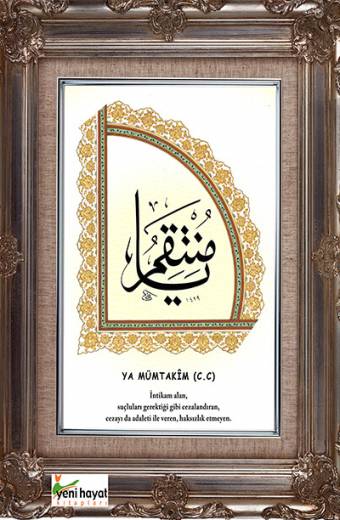 يا منتقم
١٤١٩
YA MÜMTAKİM (C.C)
İntikam alan,
suçluları gerektiği gibi cezalandıran,
cezayı da adaleti ile veren, haksızlık etmeyen.
yeni hayat
kitapları